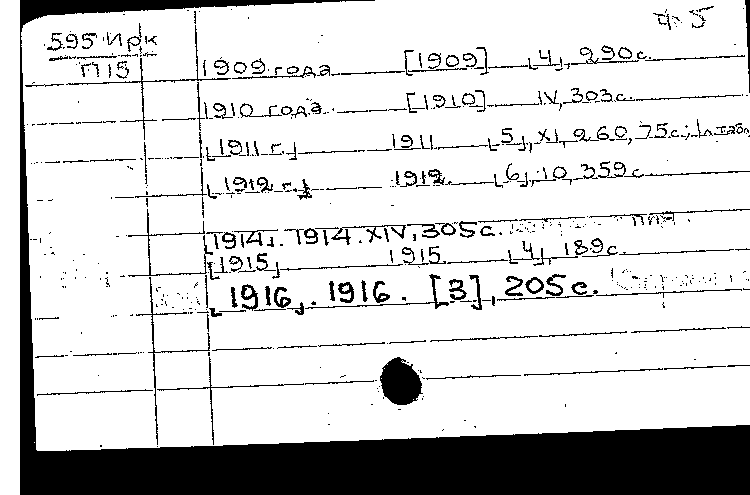 595 Ирк
П15
4. 5
1909 года [1909] [4], 290с.
1910 года. [1910] IV, 303с.
[1911 г.] 1911 [5], XI, 260, 75с.; 1л.табл
[1912 г.] 1912. [6], 10, 359с.
[1914]. 1914. XIV, 305с.
[1915] 1915. [4], 189с.
[1916]. 1916. [3], 205с.